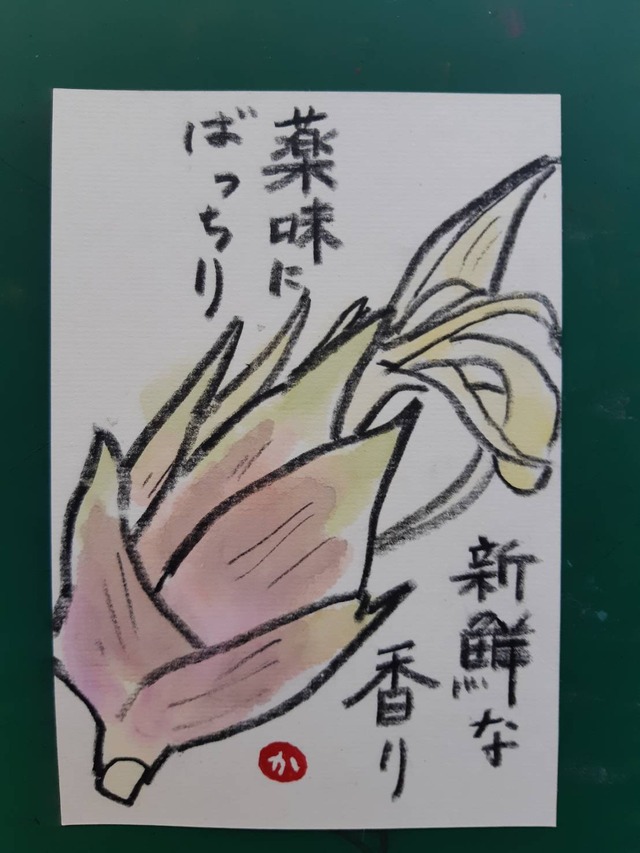 薬味に
ばっちり
新鮮な
香り
か